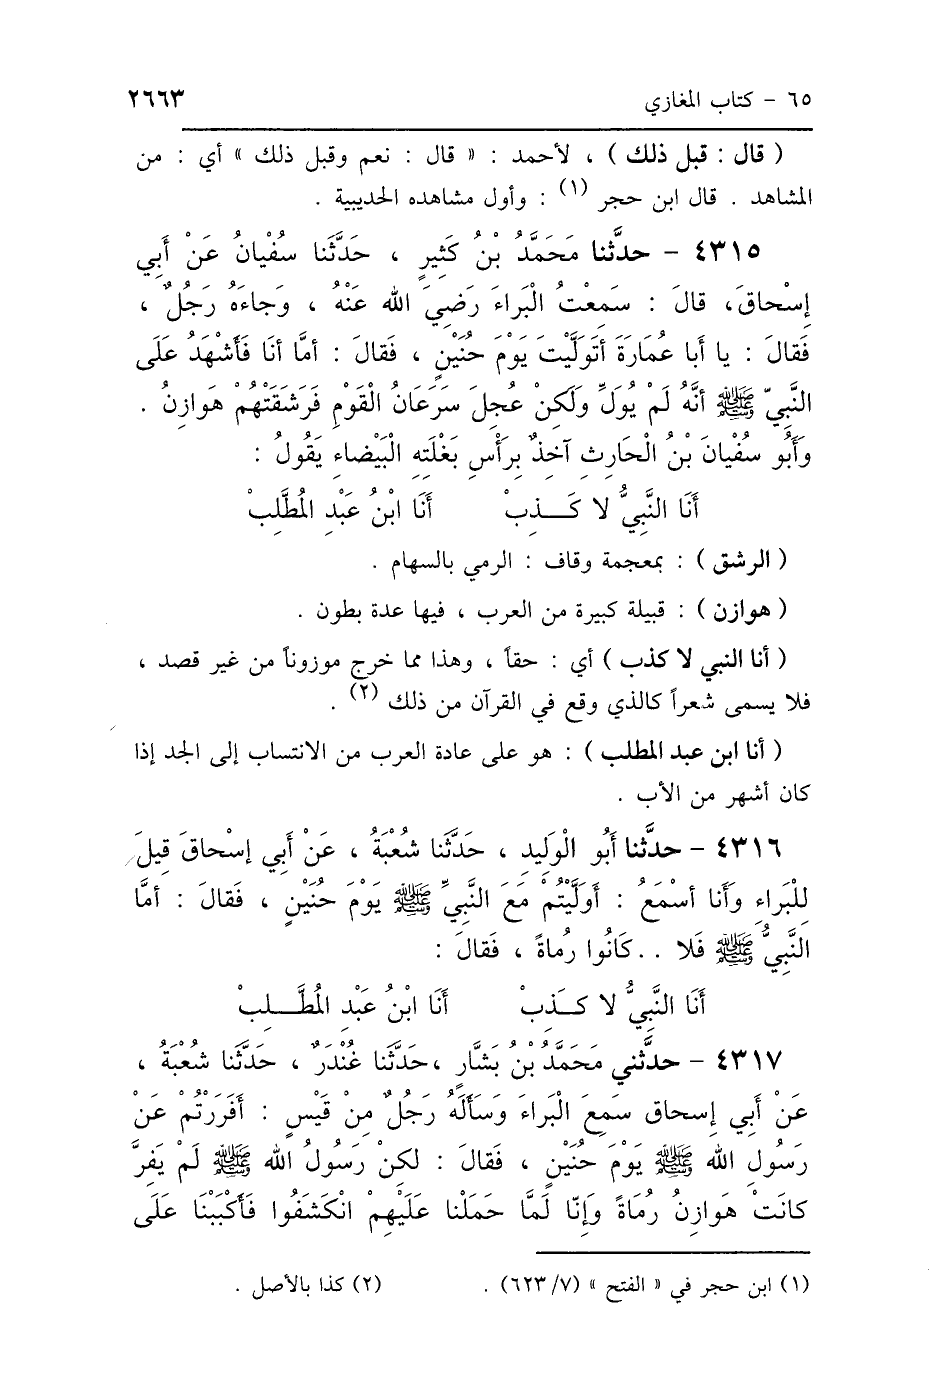 ٦٥ - كتاب المغازي ٢٦٦٣
( قال : قبل ذلك ) ، لأحمد : « قال : نعم وقبل ذلك » أي : من
المشاهد . قال ابن حجر (١) : وأول مشاهده الحديبية .
٤٣١٥ - حدَّثنا مُحَمَّدُ بْنُ كَثِيرٍ ، حَدَّثَنا سُفْيانُ عَنْ أَبِي
إِسْحاقَ، قالَ : سَمِعْتُ الْبَراءَ رَضِيَ الله عَنْهُ ، وَجاءَهُ رَجُلٌ ،
فَقالَ : يا أَبا عُمَارَةَ أَتَوَلَّيْتَ يَوْمَ حُنَيْنٍ ، فَقالَ : أَمَّا أَنَا فَأَشْهَدُ عَلَى
النَّبِيّ ﷺ أَنَّهُ لَمْ يُوَلِّ وَلَكِنْ عُجِلَ سَرَعَانُ الْقَوْمِ فَرَشَقَتْهُمْ هَوازِنُ .
وَأَبُو سُفْيانَ بْنُ الْحارِثِ آخِذٌ بِرَأْسِ بَغْلَتِهِ الْبَيْضاءِ يَقُولُ :
أَنَا النَّبِيُّ لا كَـــذِبْ أَنَا ابْنُ عَبْدِ الْمُطَّلِبْ
( الرشق ) : بمعجمة وقاف : الرمي بالسهام .
( هوازن ) : قبيلة كبيرة من العرب ، فيها عدة بطون .
( أنا النبي لا كذب ) أي : حقاً ، وهذا مما خرج موزوناً من غير قصد ،
فلا يسمى شعراً كالذي وقع في القرآن من ذلك (٢) .
( أنا ابن عبد المطلب ) : هو على عادة العرب من الانتساب إلى الجد إذا
كان أشهر من الأب .
٤٣١٦ - حدَّثنا أَبُو الْوَلِيدِ ، حَدَّثَنا شُعْبَةُ ، عَنْ أَبِي إِسْحاقَ قِيلَ
لِلْبَراءِ وَأَنا أَسْمَعُ : أَوَلَّيْتُمْ مَعَ النَّبِيِّ ﷺ يَوْمَ حُنَيْنٍ ، فَقالَ : أَمَّا
النَّبِيُّ ﷺ فَلا .. كَانُوا رُماةً ، فَقالَ :
أَنَا النَّبِيُّ لا كَـذِبْ أَنَا ابْنُ عَبْدِ الْمُطَّــلِبْ
٤٣١٧ - حدَّثني مُحَمَّدُ بْنُ بَشَّارٍ ،حَدَّثَنا غُنْدَرٌ ، حَدَّثَنا شُعْبَةُ ،
عَنْ أَبِي إِسحاق سَمِعَ الْبَراءَ وَسَأَلَهُ رَجُلٌ مِنْ قَيْسٍ : أَفَرَرْتُمْ عَنْ
رَسُولِ الله ﷺ يَوْمَ حُنَيْنٍ ، فَقالَ : لكِنْ رَسُولُ الله ﷺ لَمْ يَفِرَّ
كانَتْ هَوازِنُ رُمَاةً وَإِنّا لَمَّا حَمَلْنا عَلَيْهِمْ انْكَشَفُوا فَأَكْبَبْنَا عَلَى
(١) ابن حجر في « الفتح » (٦٢٣/٧) . (٢) كذا بالأصل .